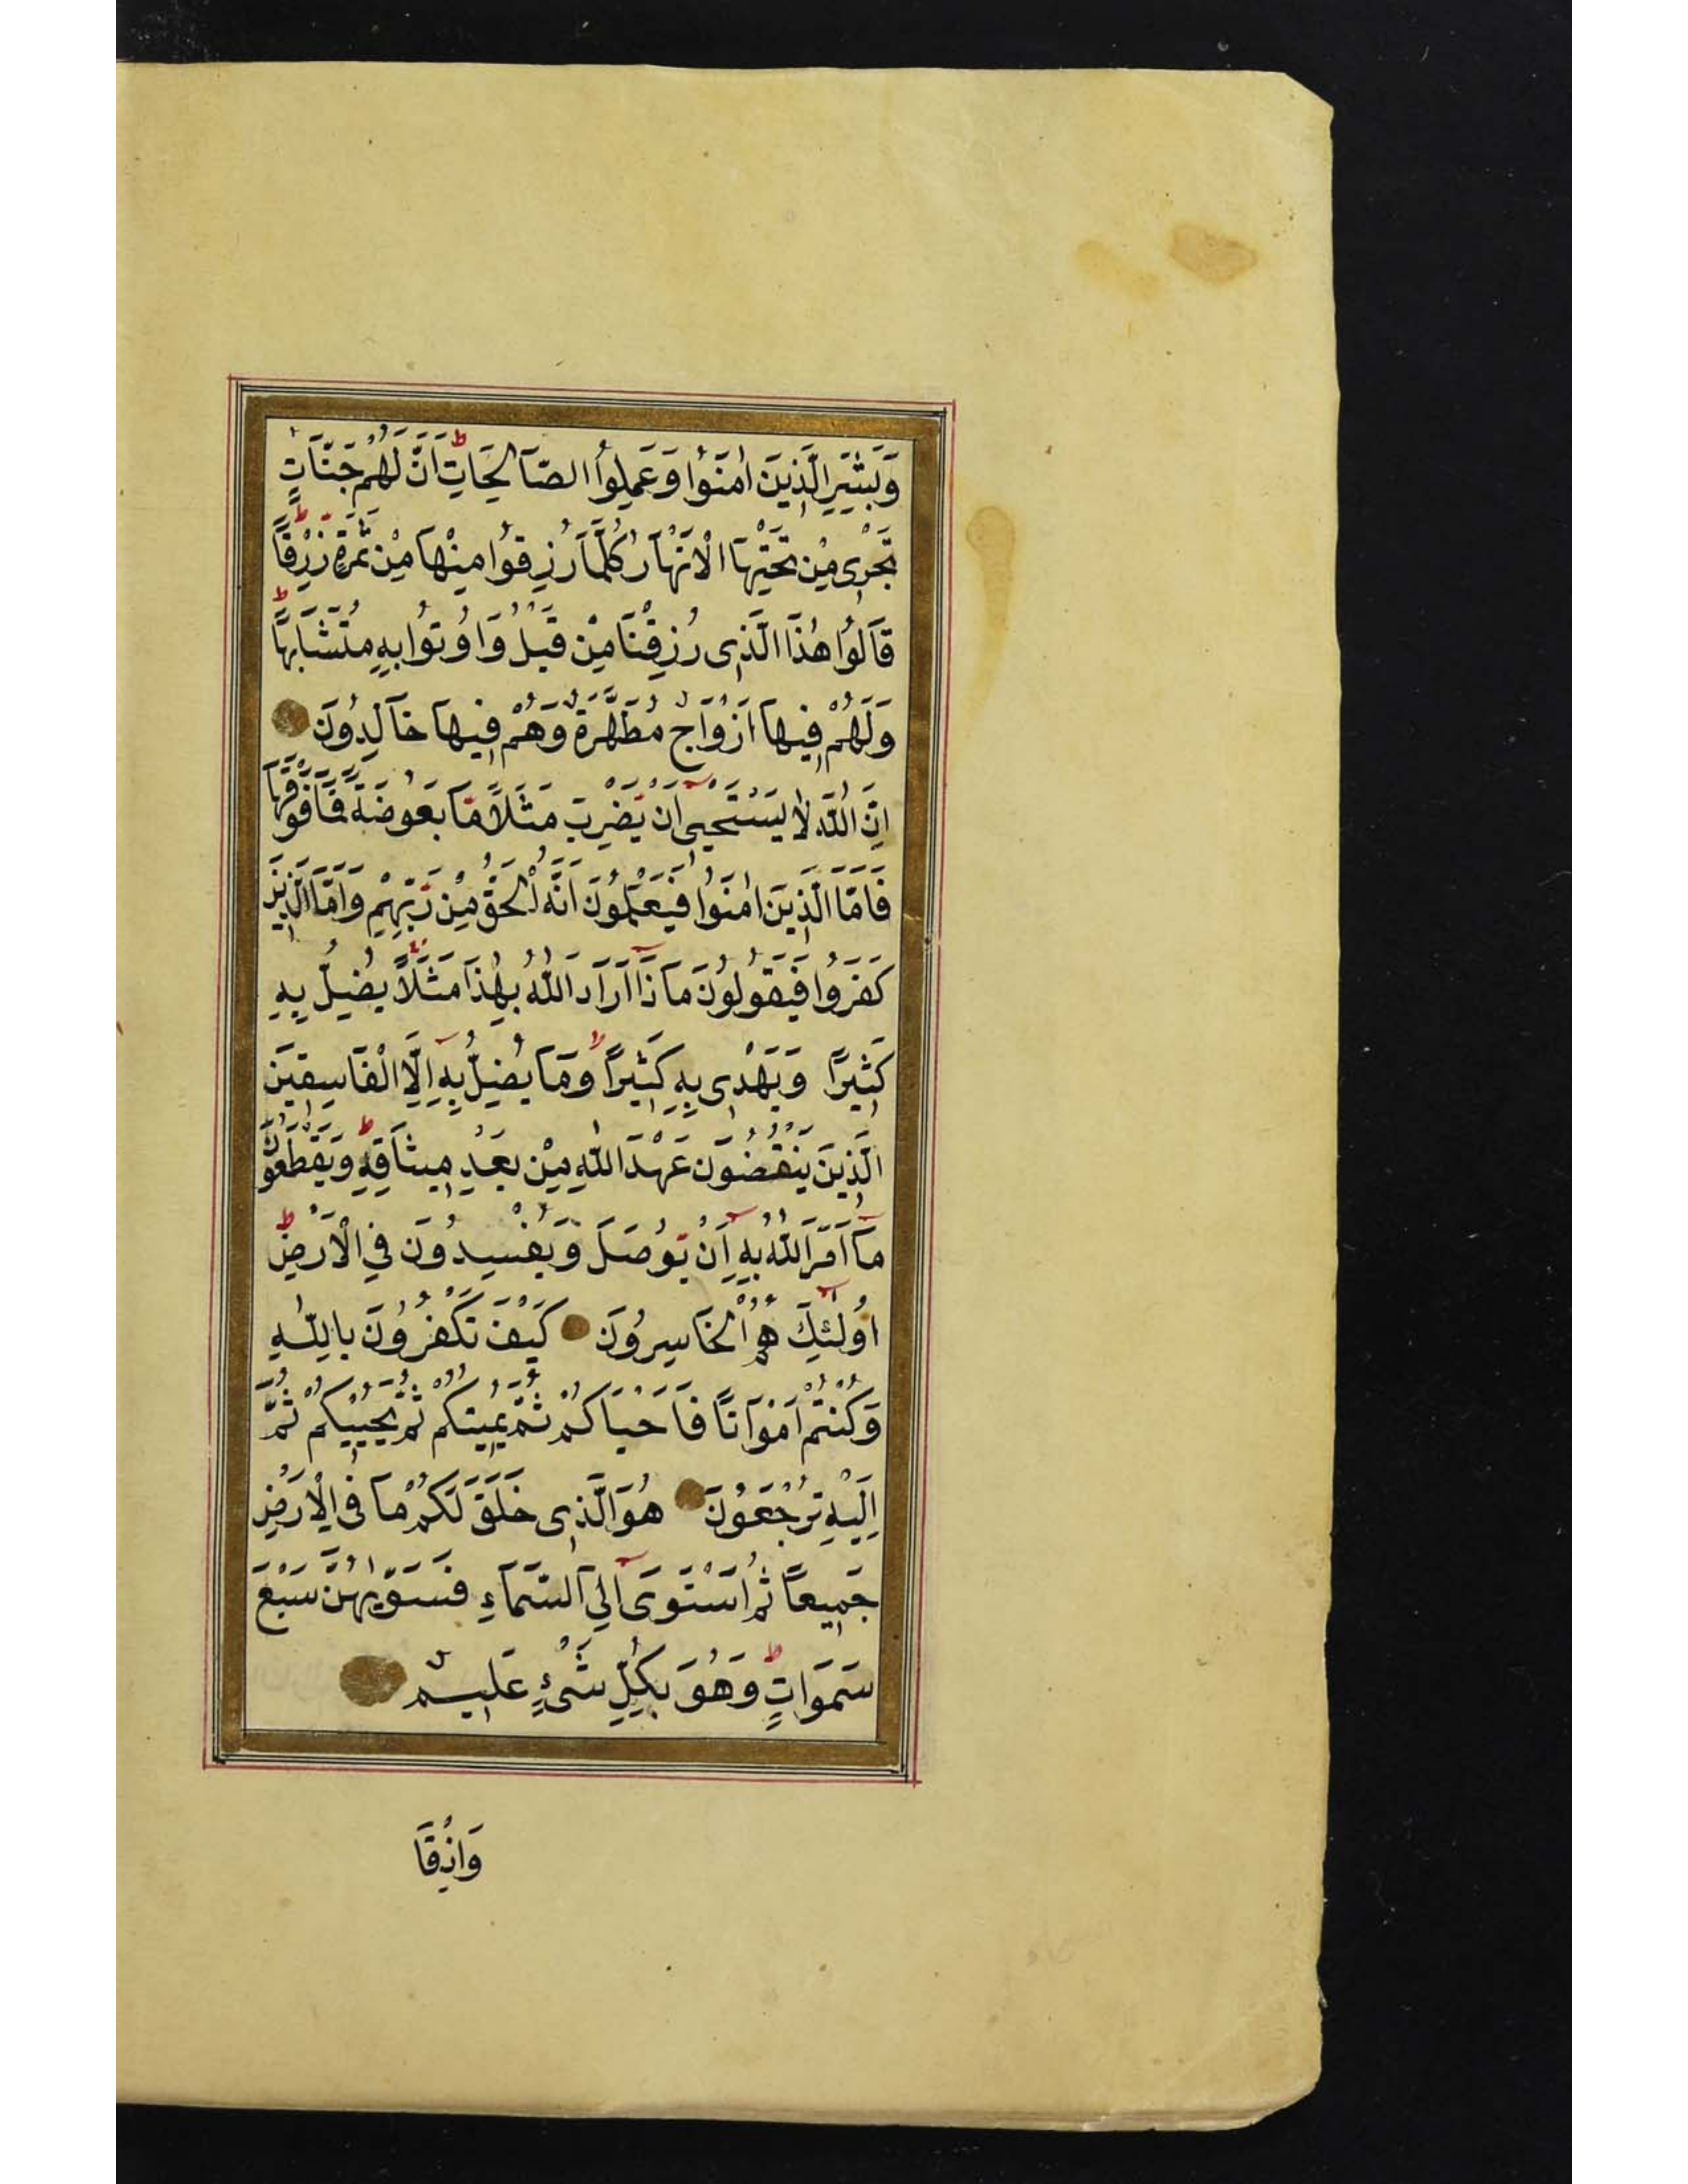 وَبَشِّرِ الَّذِينَ اٰمَنُوا وَعَمِلُوا الصَّالِحَاتِ اَنَّ لَهُمْ جَنَّاتٍ
تَجْرِى مِنْ تَحْتِهَا الْاَنْهَارُ كُلَّمَا رُزِقُوا مِنْهَا مِنْ ثَمَرَةٍ رِزْقًا
قَالُوا هٰذَا الَّذِى رُزِقْنَا مِنْ قَبْلُ وَاُوتُوا بِهِ مُتَشَابِهًا
وَلَهُمْ فِيهَا اَزْوَاجٌ مُطَهَّرَةٌ وَهُمْ فِيهَا خَالِدُونَ
اِنَّ اللّٰهَ لَا يَسْتَحْيِى اَنْ يَضْرِبَ مَثَلًا مَا بَعُوضَةً فَمَا فَوْقَهَا
فَاَمَّا الَّذِينَ اٰمَنُوا فَيَعْلَمُونَ اَنَّهُ الْحَقُّ مِنْ رَبِّهِمْ وَاَمَّا الَّذِينَ
كَفَرُوا فَيَقُولُونَ مَاذَا اَرَادَ اللّٰهُ بِهٰذَا مَثَلًا يُضِلُّ بِهِ
كَثِيرًا وَيَهْدِى بِهِ كَثِيرًا وَمَا يُضِلُّ بِهِ اِلَّا الْفَاسِقِينَ
الَّذِينَ يَنْقُضُونَ عَهْدَ اللّٰهِ مِنْ بَعْدِ مِيثَاقِهِ وَيَقْطَعُونَ
مَا اَمَرَ اللّٰهُ بِهِ اَنْ يُوصَلَ وَيُفْسِدُونَ فِى الْاَرْضِ
اُولٰئِكَ هُمُ الْخَاسِرُونَ كَيْفَ تَكْفُرُونَ بِاللّٰهِ
وَكُنْتُمْ اَمْوَاتًا فَاَحْيَاكُمْ ثُمَّ يُمِيتُكُمْ ثُمَّ يُحْيِيكُمْ ثُمَّ
اِلَيْهِ تُرْجَعُونَ هُوَ الَّذِى خَلَقَ لَكُمْ مَا فِى الْاَرْضِ
جَمِيعًا ثُمَّ اسْتَوَى اِلَى السَّمَاءِ فَسَوّٰيهُنَّ سَبْعَ
سَمَوَاتٍ وَهُوَ بِكُلِّ شَىْءٍ عَلِيمٌ
وَاِذْ قَا